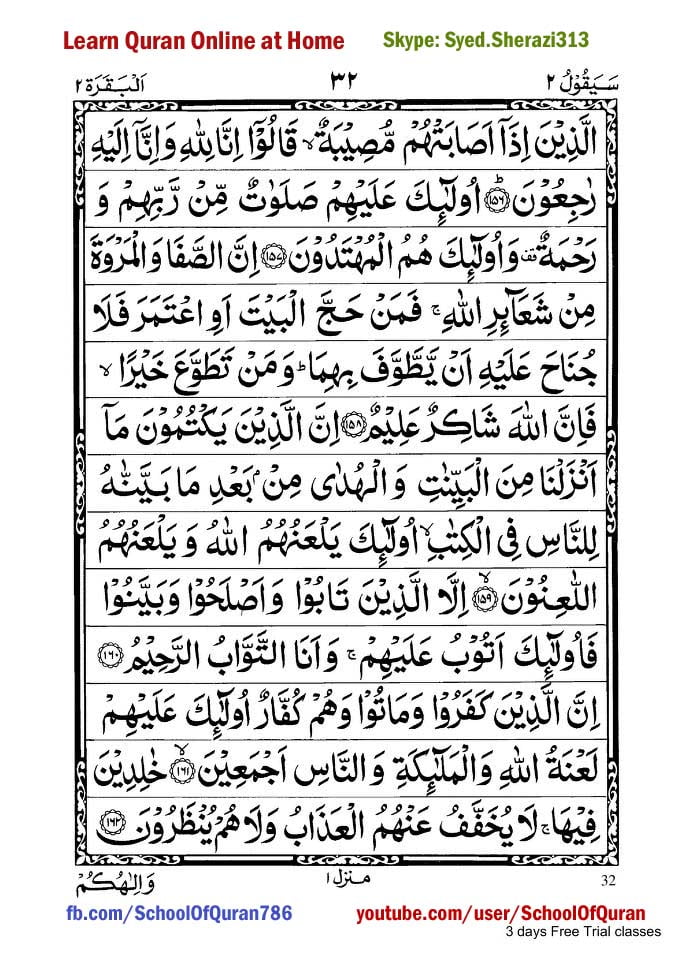 Learn Quran Online at Home Skype: Syed.Sherazi313
سَيَقُوْلُ ٢ ٣٢ اَلْبَقَرَة ٢
الَّذِيْنَ اِذَآ اَصَابَتْهُمْ مُّصِيْبَةٌ ۙ قَالُوْٓا اِنَّا لِلّٰهِ وَاِنَّآ اِلَيْهِ
رٰجِعُوْنَ ﴿١٥٦﴾ؕ اُولٰٓئِكَ عَلَيْهِمْ صَلَوٰتٌ مِّنْ رَّبِّهِمْ وَ
رَحْمَةٌ ۫ وَاُولٰٓئِكَ هُمُ الْمُهْتَدُوْنَ ﴿١٥٧﴾ اِنَّ الصَّفَا وَالْمَرْوَةَ
مِنْ شَعَآئِرِ اللّٰهِ ۚ فَمَنْ حَجَّ الْبَيْتَ اَوِ اعْتَمَرَ فَلَا
جُنَاحَ عَلَيْهِ اَنْ يَّطَّوَّفَ بِهِمَا ؕ وَمَنْ تَطَوَّعَ خَيْرًا ۙ
فَاِنَّ اللّٰهَ شَاكِرٌ عَلِيْمٌ ﴿١٥٨﴾ اِنَّ الَّذِيْنَ يَكْتُمُوْنَ مَآ
اَنْزَلْنَا مِنَ الْبَيِّنٰتِ وَالْهُدٰى مِنْۢ بَعْدِ مَا بَيَّنّٰهُ
لِلنَّاسِ فِى الْكِتٰبِ ۙ اُولٰٓئِكَ يَلْعَنُهُمُ اللّٰهُ وَيَلْعَنُهُمُ
اللّٰعِنُوْنَ ﴿١٥٩﴾ۙ اِلَّا الَّذِيْنَ تَابُوْا وَاَصْلَحُوْا وَبَيَّنُوْا
فَاُولٰٓئِكَ اَتُوْبُ عَلَيْهِمْ ۚ وَاَنَا التَّوَّابُ الرَّحِيْمُ ﴿١٦٠﴾
اِنَّ الَّذِيْنَ كَفَرُوْا وَمَاتُوْا وَهُمْ كُفَّارٌ اُولٰٓئِكَ عَلَيْهِمْ
لَعْنَةُ اللّٰهِ وَالْمَلٰٓئِكَةِ وَالنَّاسِ اَجْمَعِيْنَ ﴿١٦١﴾ۙ خٰلِدِيْنَ
فِيْهَا ۚ لَا يُخَفَّفُ عَنْهُمُ الْعَذَابُ وَلَا هُمْ يُنْظَرُوْنَ ﴿١٦٢﴾
32 منزل ١ وَاِلٰهُكُمْ
fb.com/SchoolOfQuran786 youtube.com/user/SchoolOfQuran
3 days Free Trial classes